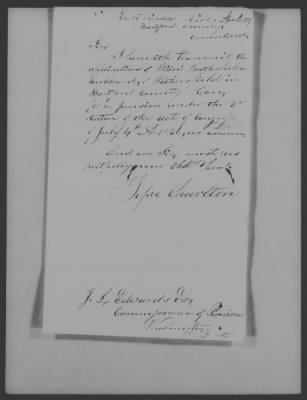 East Windsor Hill, Apl
Hartford County
Connecticut
Sir
I herewith transmit the
application of Widow
Hubbard, of Wethersfield in
Hartford County Conn
for a pension under the 3d
section of the act of Congress
of July 4th AD 1836, and
And am Sir most res
pectfully your Obdt Servt
Jesse Charlton
J. L. Edwards Esq
Commissioner of Pensions
Washington